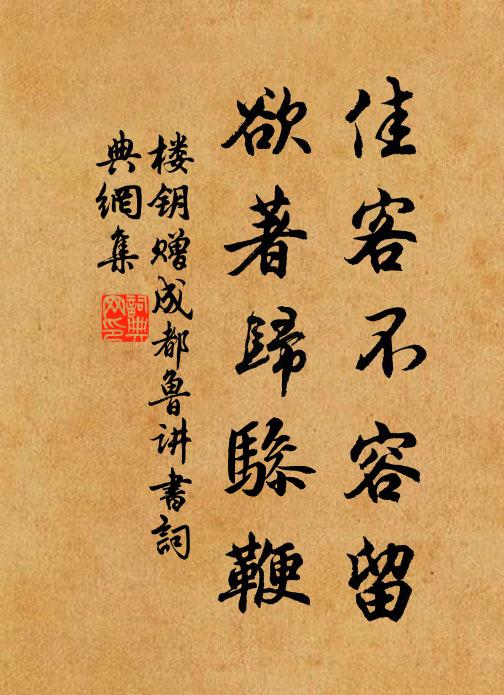 佳客不容留
欲著歸驂鞭
楼钥赠成都鲁讲书詞
典網集
詞典
网印